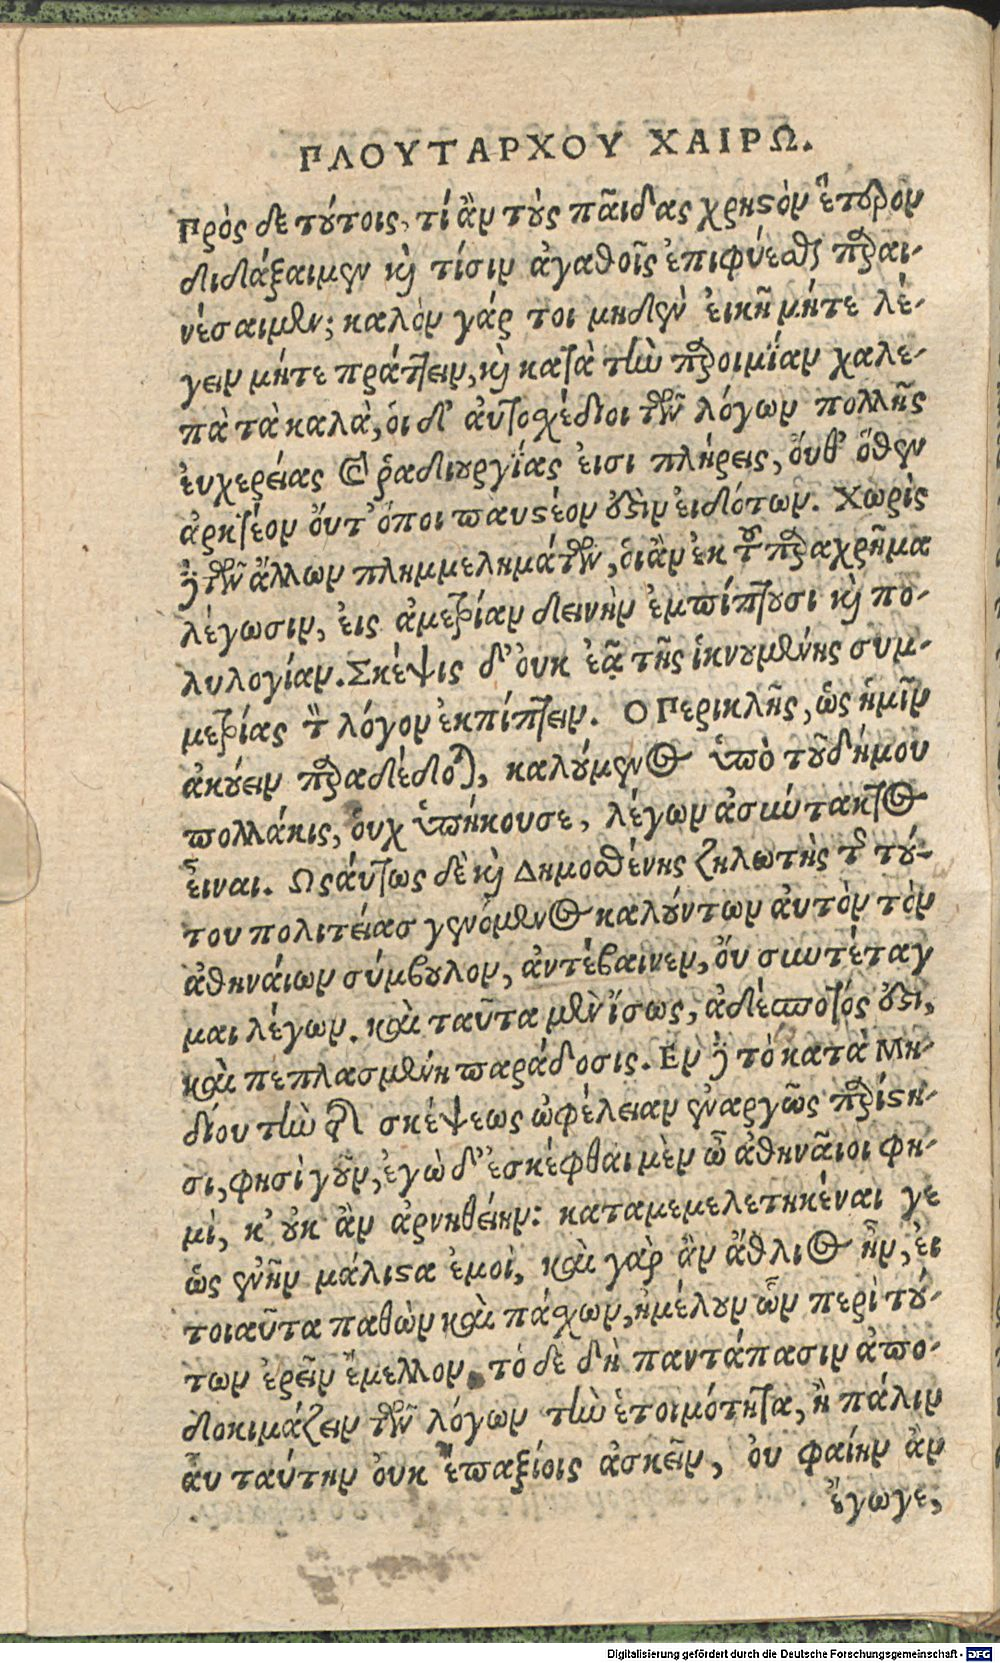 ΠΛΟΥΤΑΡΧΟΥ ΧΑΙΡΩ.
Πρὸς δὲ τούτοις, τί ἂν τοὺς παῖδας χρηστὸν ἕτερον
διδάξαιμεν καὶ τίσιν ἀγαθοῖς ἐπιφύεσθαι παραι-
νέσαιμεν; καλὸν γάρ τοι μηδὲν ἐικῆ μήτε λέ-
γειν μήτε πράττειν, καὶ κατὰ τὴν παροιμΐαν χαλε-
πὰ τὰ καλὰ, ὁι δ' ἀυτοσχέδιοι τῶν λόγων πολλῆς
ἐυχερείας καὶ ῥαδιουργΐας ἐισι πλήρεις, ὄυθ' ὅθεν
ἀρκτέον ὄυτ' ὅποι παυστέον ἐστὶν ἐιδότων. Χωρὶς
δὲ τῶν ἄλλων πλημμελημάτων, ὁι ἂν ἐκ τοῦ παραχρῆμα
λέγωσιν, ἐις ἀμετρίαν δεινὴν ἐμπίπτουσι καὶ πο-
λυλογίαν. Σκέψις δ' ὀυκ ἐᾷ τῆς ἱκνουμένης συμ-
μετρίας τὸν λόγον ἐκπίπτειν. Ο Περικλῆς, ὡς ἡμῖν
ἀκούειν παραδέδοται, καλούμενος ὑπὸ τοῦ δήμου
πολλάκις, ὀυχ ὑπήκουσε, λέγων ἀσύντακτος
ἐιναι. Ωσάυτως δὲ καὶ Δημοσθένης ζηλωτὴς τῆς τού-
του πολιτείασ γενόμενος καλούντων ἀυτὸν τὸν
ἀθηνάιων σύμβουλον, ἀντέβαινεν, ὄυ συντέταγ
μαι λέγων. καὶ ταῦτα μὲν ἴσως, ἀδέσποτός ἐστι,
καὶ πεπλασμένη παράδοσις. Εν δὲ τὸ κατὰ Μη-
δίου τὴν τῆς σκέψεως ὠφέλειαν ἐναργῶς παρίστη-
σι, φησὶ γοῦν, ἐγὼ δ' ἐσκέφθαι μὲν ὦ ἀθηνᾶιοι φη-
μὶ, κ' οὐκ ἂν ἀρνηθείην: καταμεμελετηκέναι γε
ὡς ἐνῆν μάλιστα ἐμοὶ, καὶ γὰρ ἂν ἄθλιος ἦν, ἐι
τοιαῦτα παθὼν καὶ πάσχων, ἠμέλουν ὧν περὶ τού-
των ἐρεῖν ἔμελλον. τὸ δὲ δὴ παντάπασιν ἀπο-
δοκιμάζειν τῶν λόγων τὴν ἑτοιμότητα, ἢ πάλιν
ἆυ ταύτην ὀυκ ἐπαξίοις ἀσκεῖν, ὀυ φαίην ἂν
ἔγωγε,
Digitalisierung gefördert durch die Deutsche Forschungsgemeinschaft - DFG